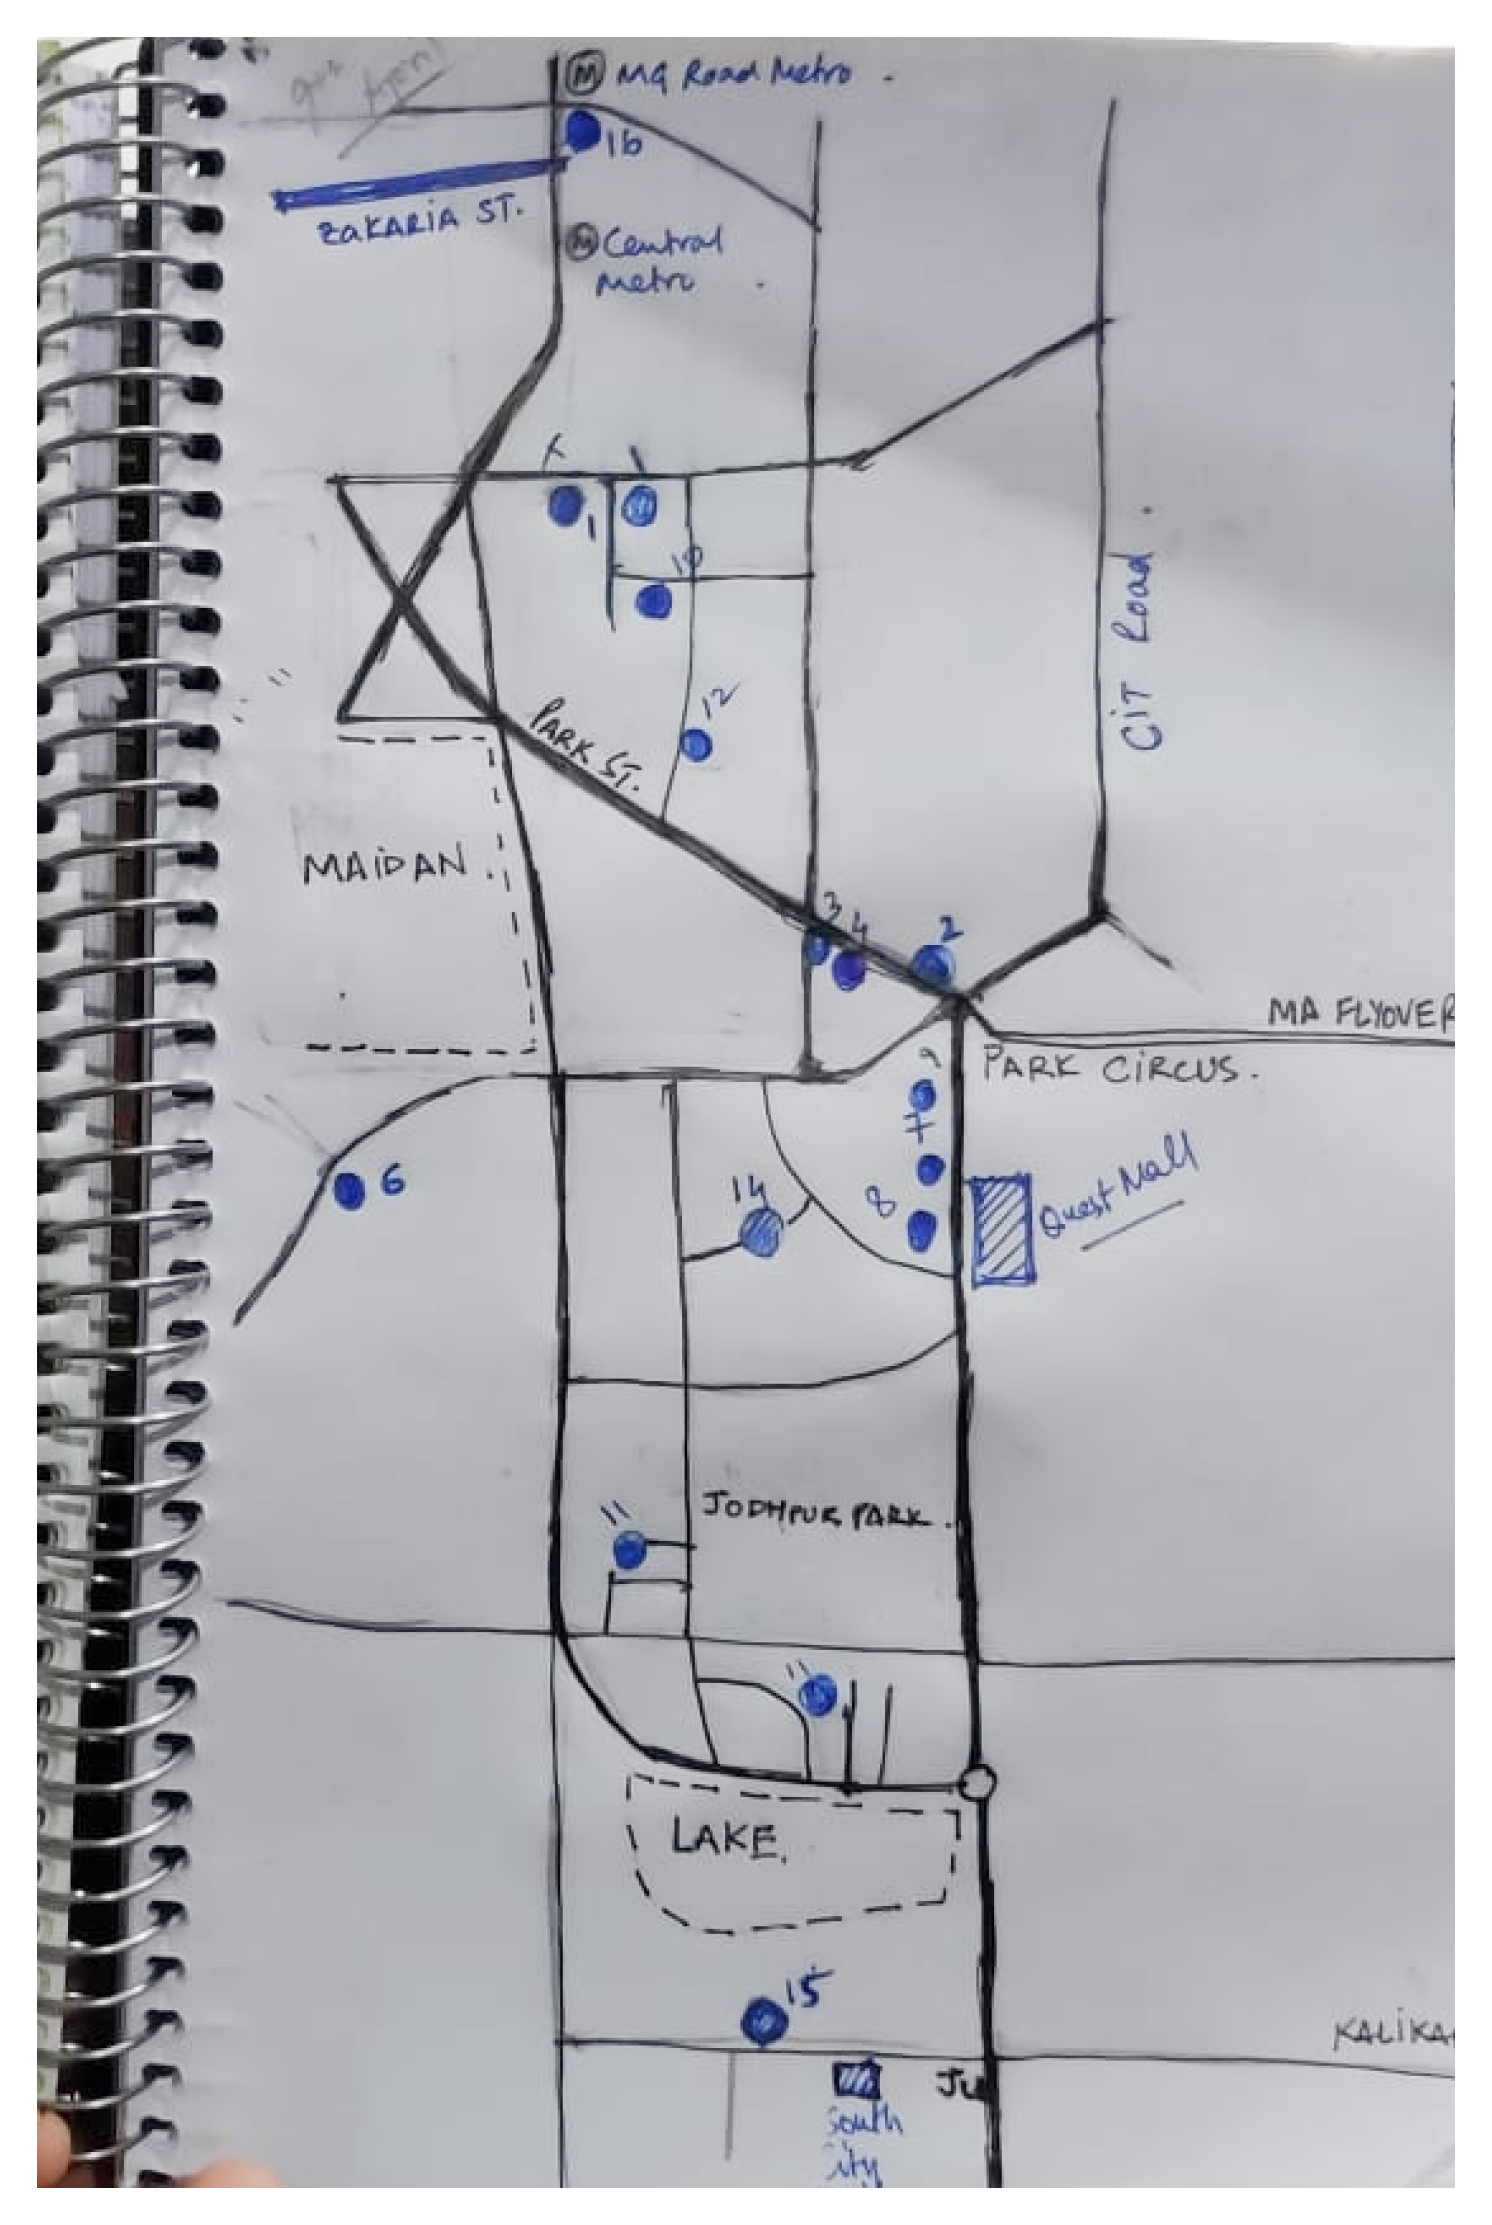 M MG Road Metro
16
ZAKARIA ST.
M Central
Metro
1
10
CIT Road
12
PARK ST.
MAIDAN
3
4
2
MA FLYOVER
PARK CIRCUS.
9
7
6
14
8
Quest Mall
JODHPUR PARK
11
11
LAKE
15
KALIKA
JU
South
City